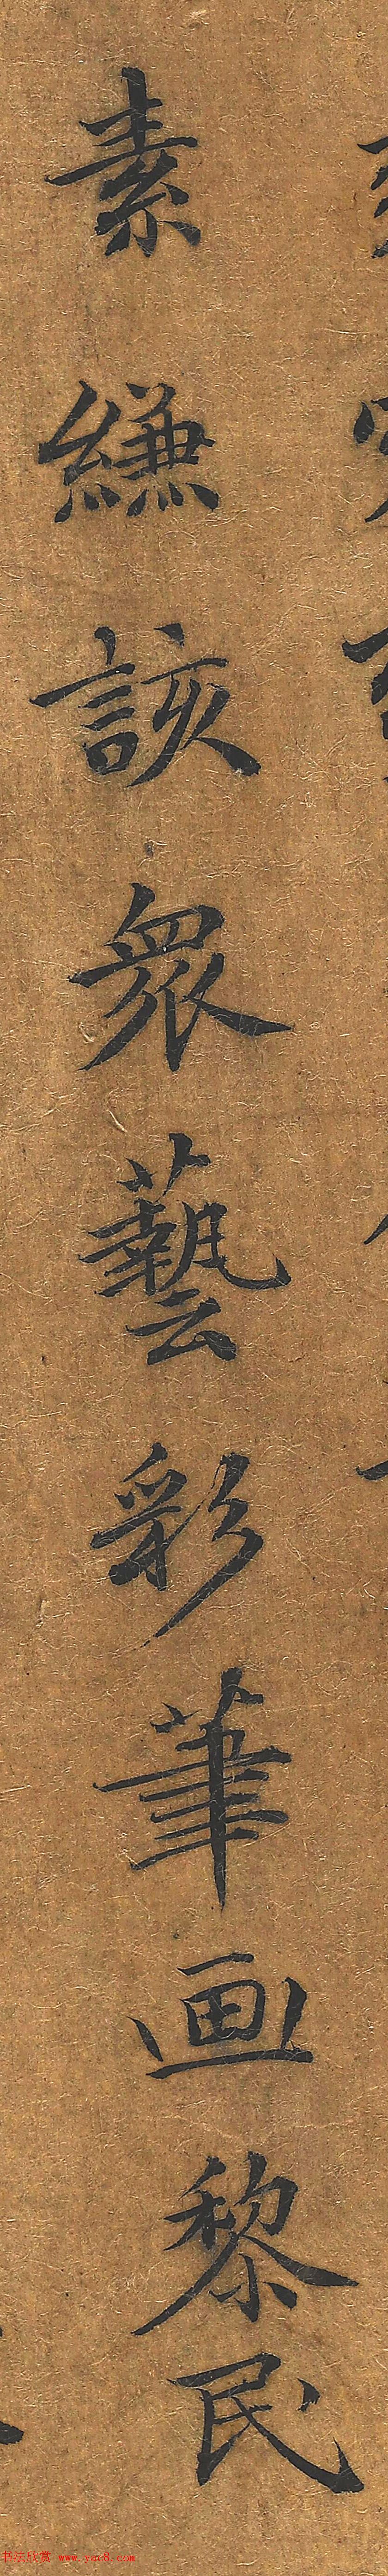 素縑該衆藝彩筆画黎民
书法欣赏 www.yac8.com